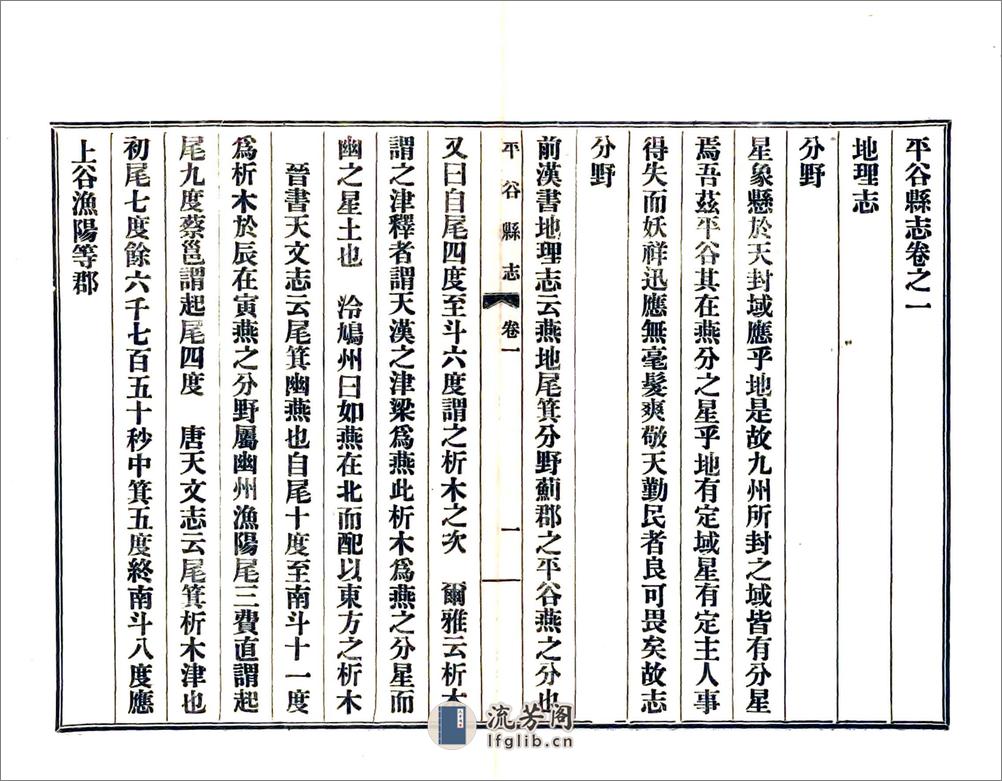 平谷縣志卷之一
地理志
分野
星象懸於天封域應乎地是故九州所封之域皆有分星
焉吾茲平谷其在燕分之星乎地有定域星有定主人事
得失而妖祥迅應無毫髮爽敬天勤民者良可畏矣故志
分野
前漢書地理志云燕地尾箕分野薊郡之平谷燕之分也
平谷縣志 卷一 一
又曰自尾四度至斗六度謂之析木之次 爾雅云析木
謂之津釋者謂天漢之津梁爲燕此析木爲燕之分星而
幽之星土也 泠鳩州曰如燕在北而配以東方之析木
晉書天文志云尾箕幽燕也自尾十度至南斗十一度
爲析木於辰在寅燕之分野屬幽州漁陽尾三費直謂起
尾九度蔡邕謂起尾四度 唐天文志云尾箕析木津也
初尾七度餘六千七百五十秒中箕五度終南斗八度應
上谷漁陽等郡
流芳閣
lfglib.cn